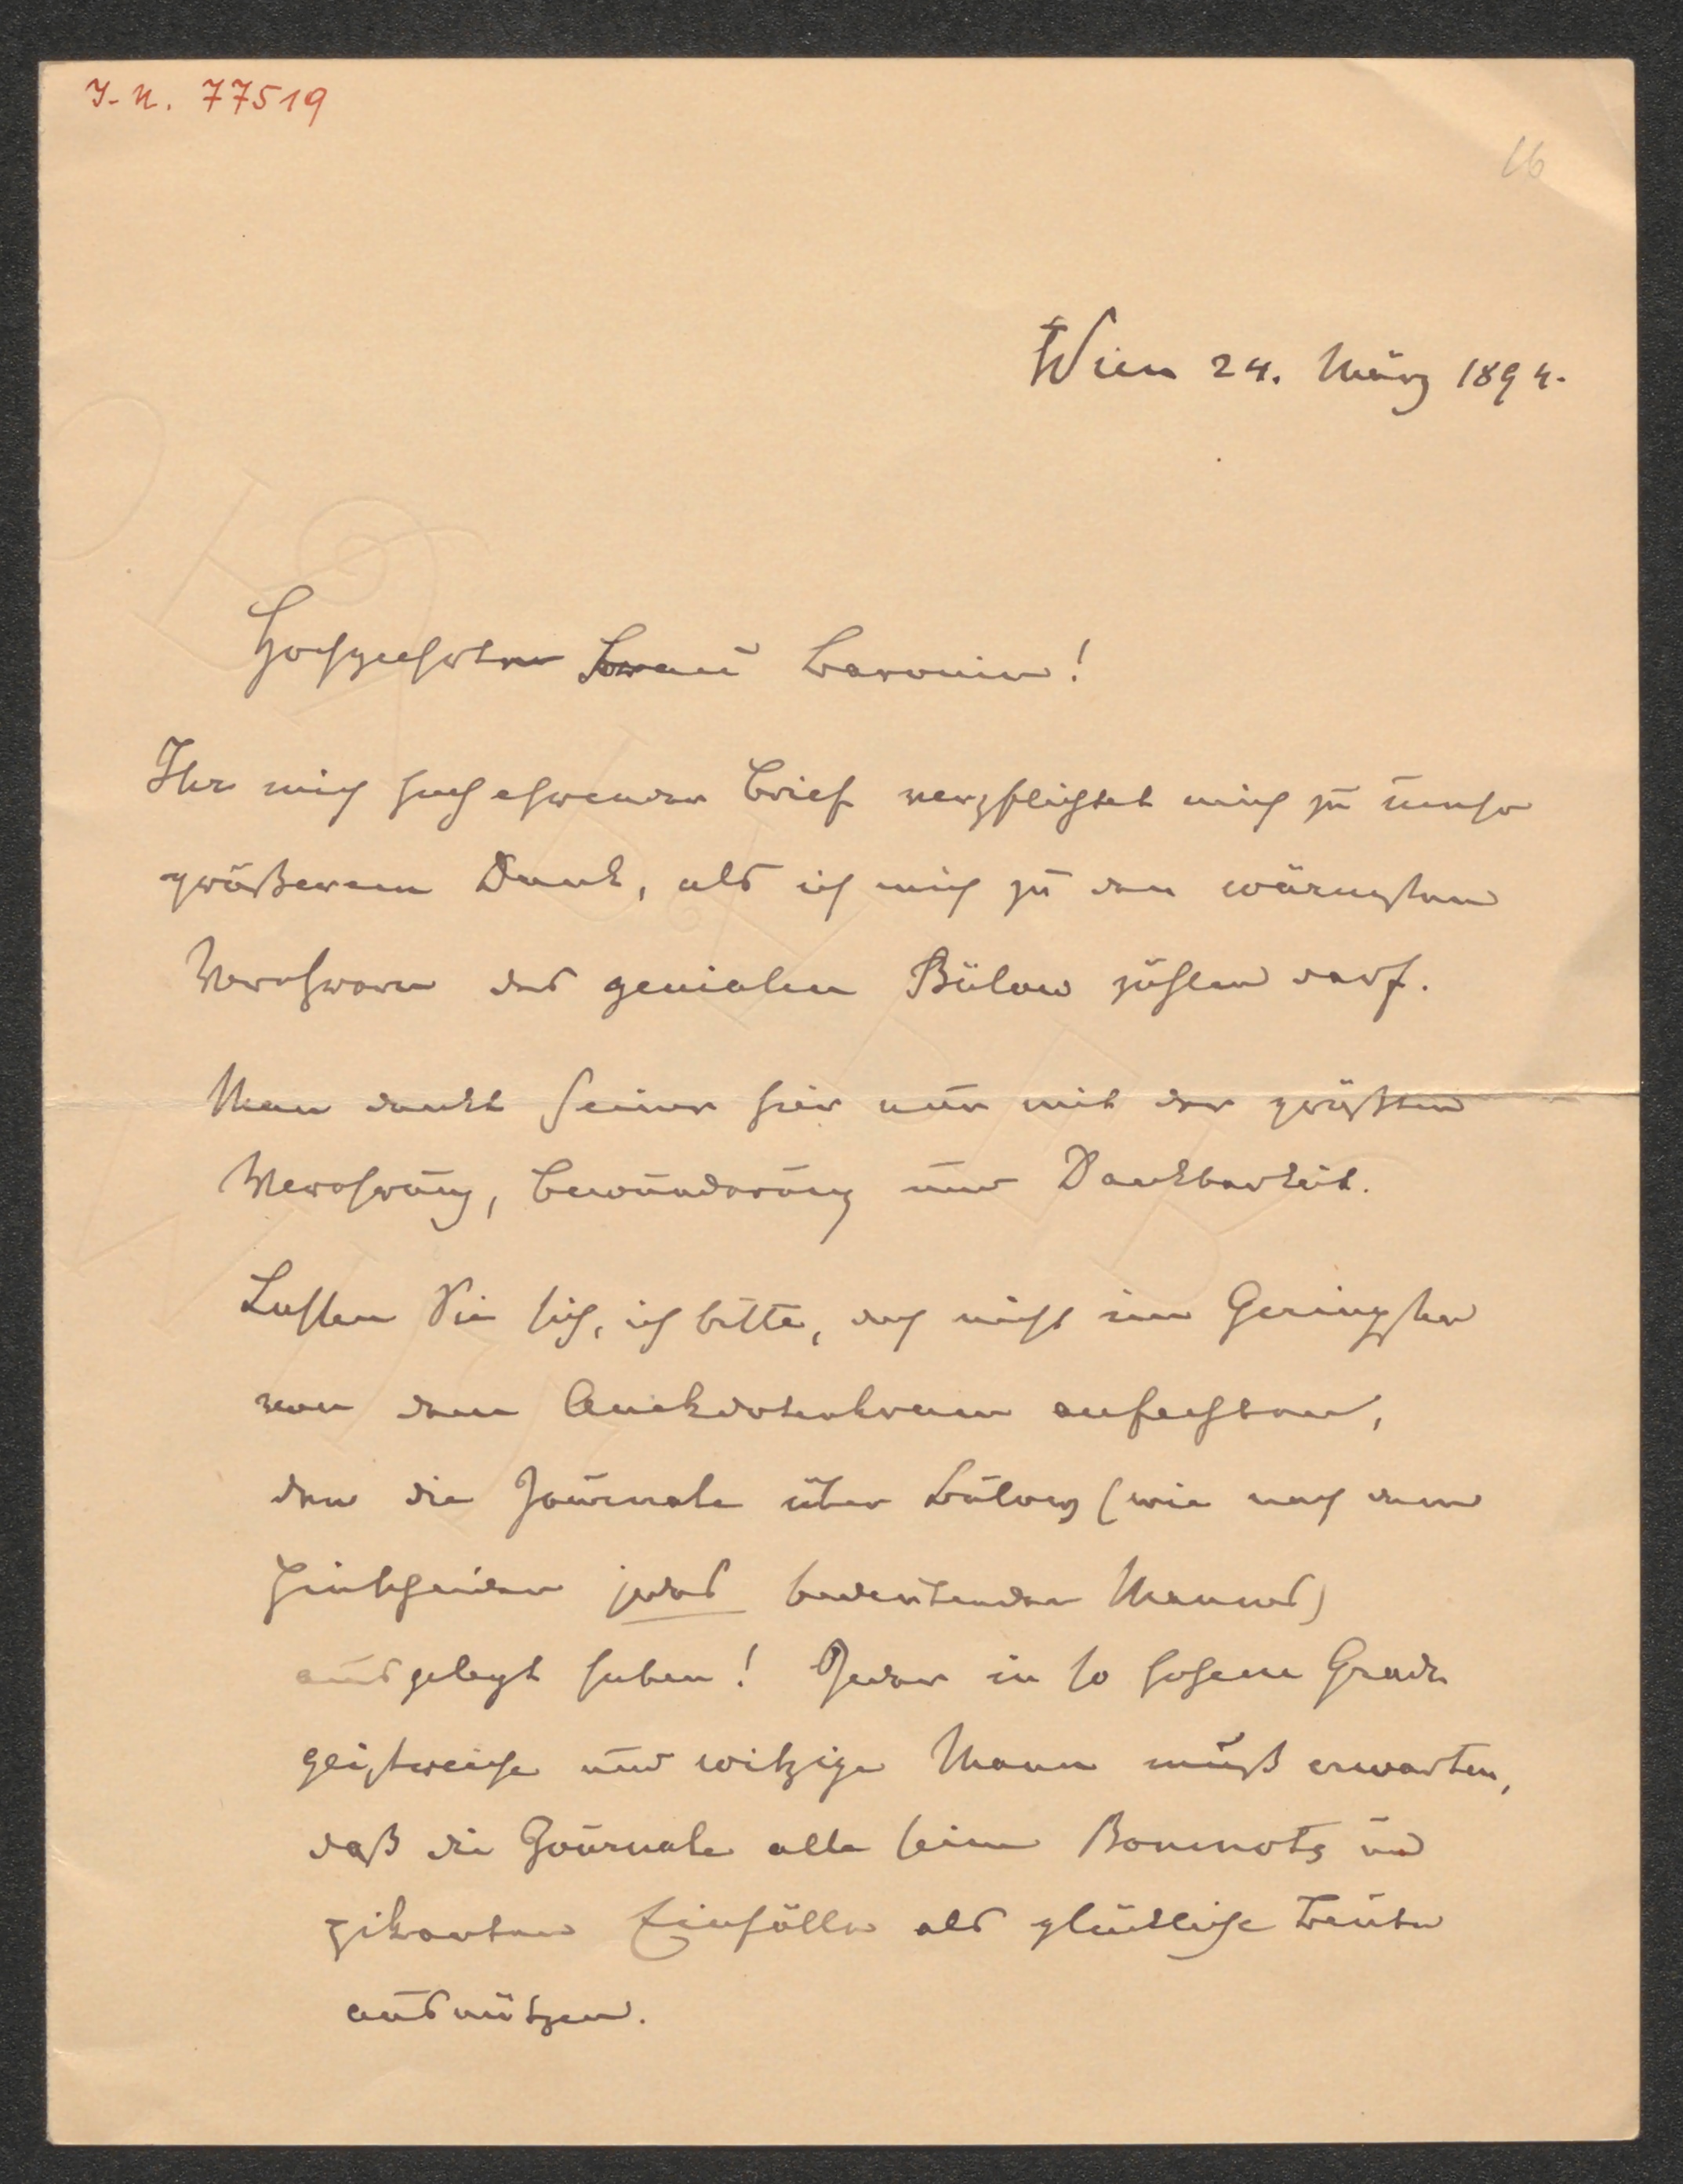 I. N. 77519
16
Wien 24. März 1894.
Hochgeehrte Frau Baronin!
Ihr mich hoch ehrender Brief verpflichtet mich zu umso
größerem Dank, als ich mich zu den wärmsten
Verehrern des genialen Bülow zählen darf.
Man denkt seiner hier nur mit der größten
Verehrung, Bewunderung und Dankbarkeit.
Lassen Sie sich, ich bitte, doch nicht im Geringsten
von dem Anekdotenkram anfechten,
den die Journale über Bülow (wie nach dem
Hinscheiden jedes bedeutenden Mannes)
ausgelegt haben! Jeder in so hohem Grade
geistreiche und witzige Mann muß erwarten,
daß die Journale alle seine Bonmots und
pikanten Einfälle als glückliche Beute
ausnützen.